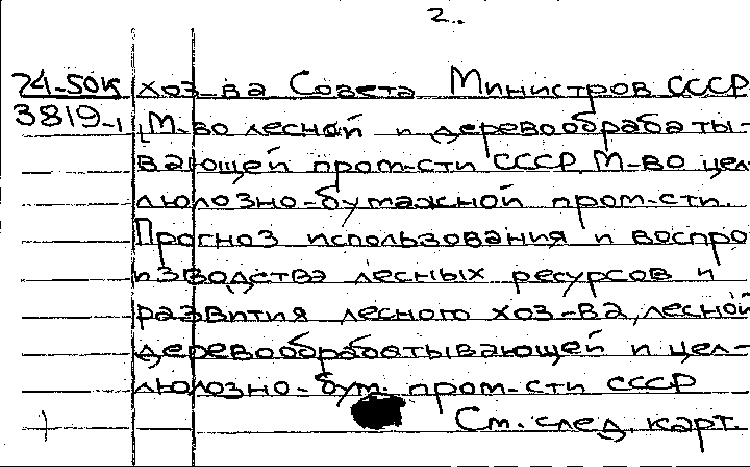 2.
74-50к хоз-ва Совета Министров СССР
3819-1 М-во лесной и деревообрабаты-
вающей пром-сти СССР, М-во цел-
люлозно-бумажной пром-сти.
Прогноз использования и воспро
изводства лесных ресурсов и
развития лесного хоз-ва, лесной
деревообрабатывающей и цел-
люлозно-бум. пром-сти СССР
См. след. карт.